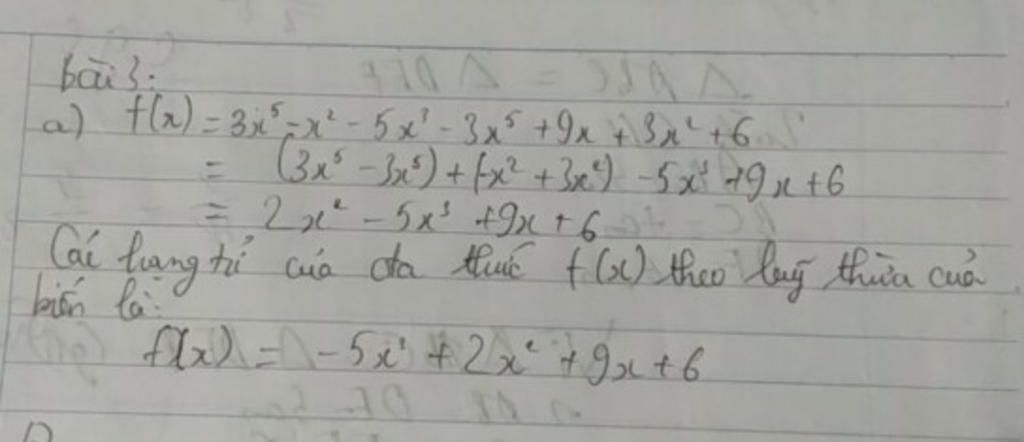 bài 3:
a) f(x) = 3x⁵ - x² - 5x³ - 3x⁵ + 9x + 3x² + 6
= (3x⁵ - 3x⁵) + (-x² + 3x²) - 5x³ + 9x + 6
= 2x² - 5x³ + 9x + 6
Các hạng tử của đa thức f(x) theo luỹ thừa của
biến là:
f(x) = -5x³ + 2x² + 9x + 6